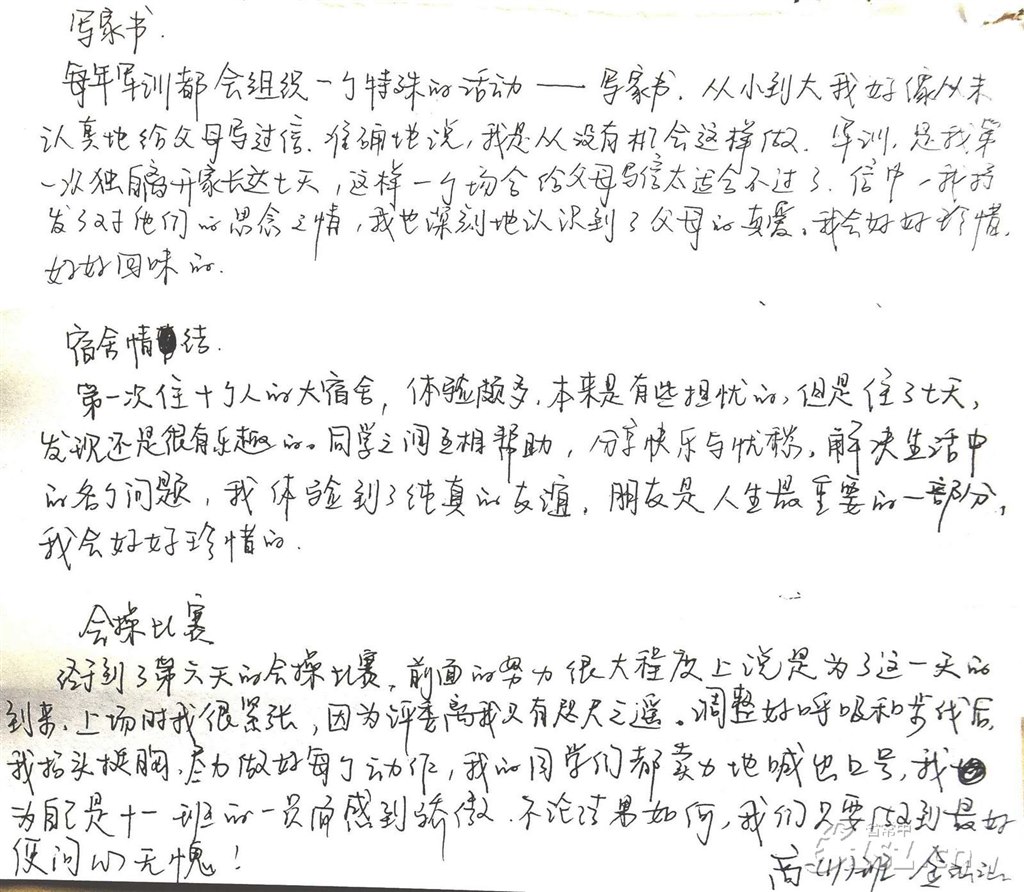 写家书.
每年军训都会组织一个特殊的活动——写家书. 从小到大我好像从未
认真地给父母写过信. 准确地说, 我是从没有机会这样做. 军训, 是我第
一次独自离开家长达七天, 这样一个场合给父母写信太适合不过了. 信中, 我抒
发了对他们的思念之情, 我也深刻地认识到了父母的真爱. 我会好好珍惜,
好好回味的.
宿舍情结.
第一次住十个人的大宿舍, 体验颇多. 本来是有些担忧的, 但是住了七天,
发现还是很有乐趣的. 同学之间互相帮助, 分享快乐与忧愁, 解决生活中
的各个问题, 我体验到了纯真的友谊. 朋友是人生最重要的一部分,
我会好好珍惜的.
会操比赛
终于到了第六天的会操比赛, 前面的努力很大程度上说是为了这一天的
到来. 上场时我很紧张, 因为评委离我只有咫尺之遥. 调整好呼吸和步伐后,
我抬头挺胸, 尽力做好每个动作, 我的同学们都卖力地喊出口号, 我
为自己是十一班的一员而感到骄傲. 不论结果如何, 我们只要做到最好
便问心无愧!
高一班